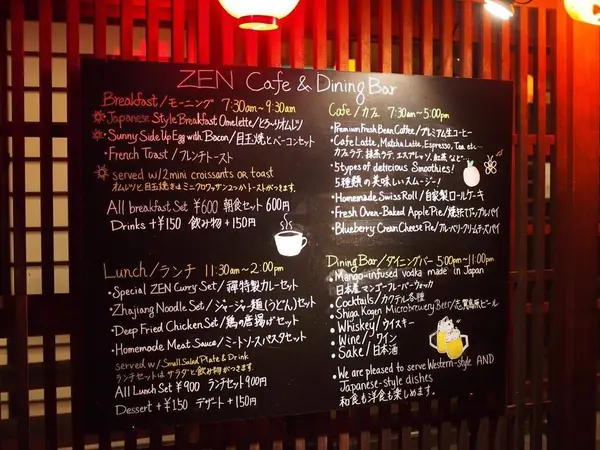 ZEN Cafe & Dining Bar
Breakfast/モーニング 7:30am~9:30am
Japanese Style Breakfast Omelette/
Sunny Side Up Egg with Bacon/目玉焼とベーコンセット
・French Toast/フレンチトースト
served w/2mini croissants OR toast
オムレツと目玉焼きはミニクロワッサン2つかトーストがつきます。
All breakfast Set ¥600 朝食セット 600円
Drinks +¥150 飲み物+150円
Lunch/ランチ 11:30am~2:00pm
・Special ZEN Curry Set/禪特製カレーセット
・Zhajiang Noodle Set/ジャージャー麺(うどん)セット
・Deep Fried Chicken Set/鶏の唐揚げセット
・Homemade Meat Sauce/ミートソースパスタセット
served w/Small Salad Plate & Drink
ランチセットはサラダと飲み物がつきます。
All Lunch Set ¥900 ランチセット900円
Dessert +¥150 デザート+150円
Cafe/カフェ 7:30am~5:00pm
・Premium Fresh Bean Coffee/プレミアム生コーヒー
・Cafe Latte, Matcha Latte, Espresso, Tea etc…
カフェラテ、抹茶ラテ、エスプレッソ、紅茶など…
・5types of delicious Smoothies!
5種類の美味しいスムージー!
・Homemade Swiss Roll/自家製ロールケーキ
・Fresh Oven-Baked Apple Pie/アップルパイ
・Blueberry Cream Cheese Pie/ブルーベリークリームチーズパイ
Dining Bar/ダイニングバー 5:00pm~11:00pm
・Mango-infused vodka made in Japan
日本産マンゴーフレーバーウォッカ
・Cocktails/カクテル各種
・Shiga Kogen Microbrewery Beer/志賀高原ビール
・Whiskey/ウイスキー
・Wine/ワイン
・Sake/日本酒
・We are pleased to serve Western-style AND
Japanese-style dishes
和食も洋食も楽しめます。